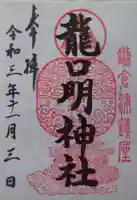 鎌倉鎮座
龍口明神社
奉拝
令和三年十一月三日